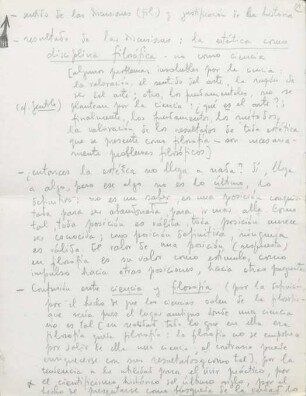 - sentido de las discusiones (Kl) y justificación de la historia
- resultado de las discusiones: la estética como
disciplina filosófica - no como ciencia
[algunos problemas, insolubles por la ciencia:
la valoración, el sentido del arte, la razón de
ser del arte; otros, los fundamentales, no se
(cf. Gentile) plantean por la ciencia: ¿qué es el arte?;
finalmente, los fundamentos, los métodos,
la valoración de los resultados de toda estética
que se presente como filosofía - son necesaria-
mente problemas filosóficos]
- ¿entonces la estética no llega a nada? Sí, llega
a algo, pero ese algo no es lo último, lo
definitivo: no es un saber, es una posición conquis-
tada para ser abandonada para ir más allá. Como
tal toda posición es válida, toda posición merece
ser conocida; como posición definitiva, ninguna
es válida. El valor de una posición (respuesta)
en filosofía es su valor como estímulo, como
impulso hacia otras posiciones, hacia otras
- Confusión entre ciencia y filosofía (por la
por el hecho de que las ciencias salen de la filosofía
que sería pues el lugar donde una ciencia
no es tal (en realidad todo lo que en ella era
filosofía queda filosofía: la filosofía no se empobrece
por salir de ella una ciencia, al contrario puede
enriquecerse con sus resultados como tal), por la
tendencia a la utilidad para el uso práctico, por
el cientificismo histórico del último siglo, por el
hecho de presentarse como búsqueda de la verdad los